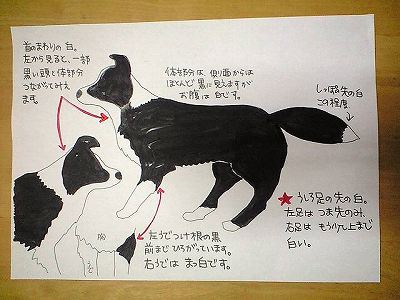 首のまわりの白。
左から見ると、一部
黒い頭と体部分
つながってみえ
ます。
体部分は、側面からは
ほとんど黒に見えますが
お腹は白です。
しっぽ先の白
この程度
★うしろ足の先の白。
左足はつま先のみ、
右足はもう少し上まで
白い。
左うでつけ根の黒
前までひろがっています。
右うではまっ白です。
胸